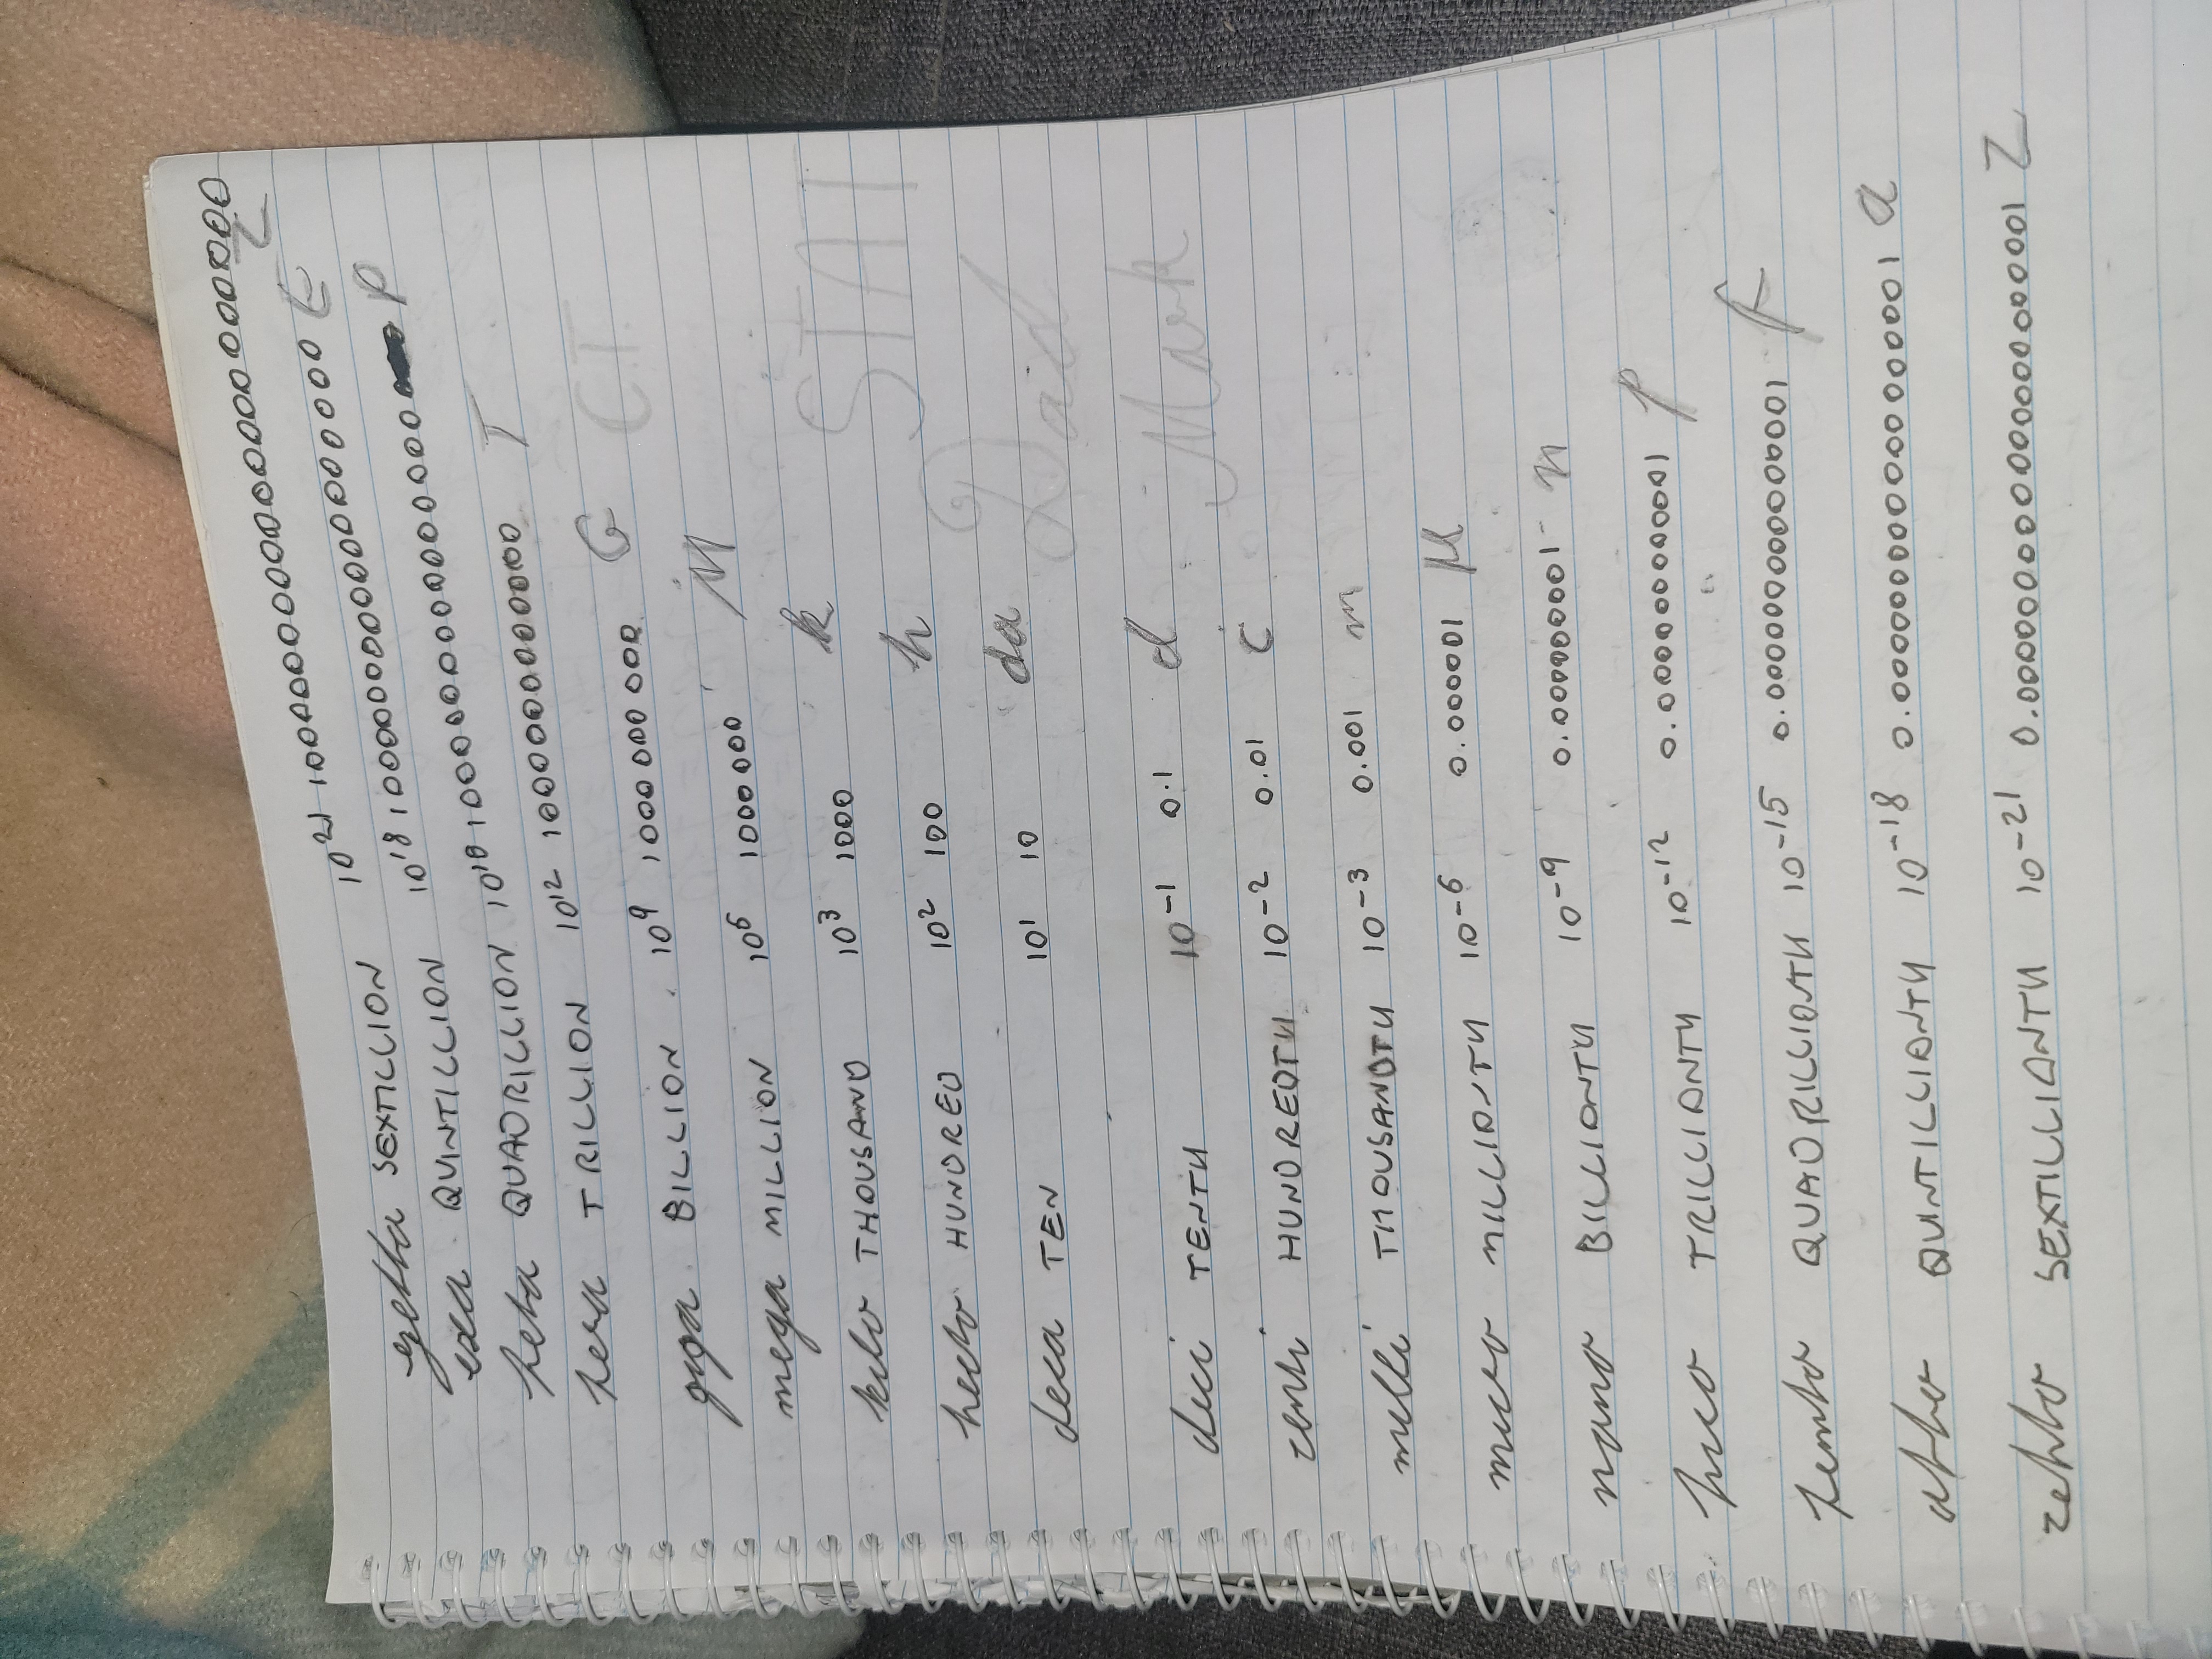 zetta SEXTILLION 10²¹ 1000000000000000000000 Z
exa QUINTILLION 10¹⁸ 1000000000000000000 E
peta QUADRILLION 10¹⁸ 1000000000000000 P
tera TRILLION 10¹² 1000000000000 T
giga BILLION 10⁹ 1000 000 000 G C.T.
mega MILLION 10⁶ 1000 000 M
kilo THOUSAND 10³ 1000 k STAT
hecto HUNDRED 10² 100 h
deca TEN 10¹ 10 da Dad
deci TENTH 10⁻¹ 0.1 d Mark
centi HUNDREDTH 10⁻² 0.01 c
milli THOUSANDTH 10⁻³ 0.001 m
micro MILLIONTH 10⁻⁶ 0.000001 μ
nano BILLIONTH 10⁻⁹ 0.000000001 n
pico TRILLIONTH 10⁻¹² 0.000000000001 p
femto QUADRILLIONTH 10⁻¹⁵ 0.000000000000001 f
atto QUINTILLIONTH 10⁻¹⁸ 0.000000000000000001 a
zepto SEXTILLIONTH 10⁻²¹ 0.000000000000000000001 Z